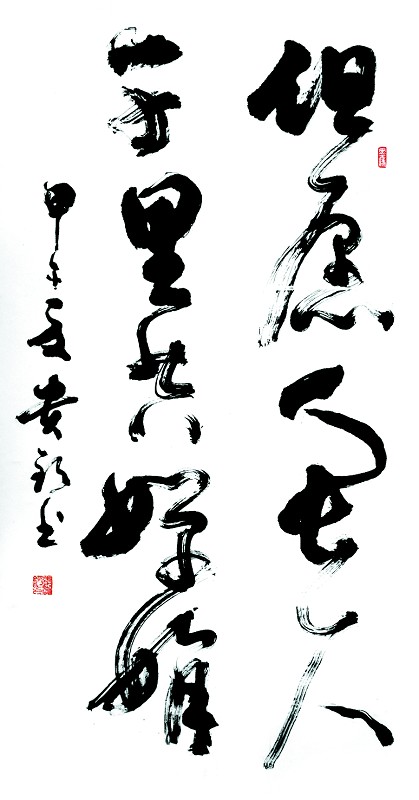 但愿人长久
千里共婵娟
甲午夏贵书